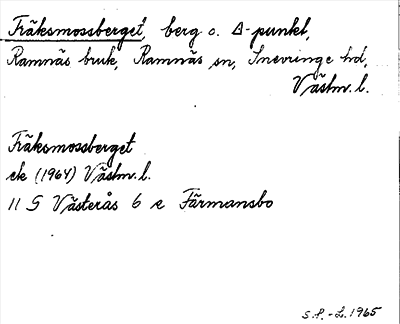 Fräksmossberget, berg o. ∆-punkt,
Ramnäs bruk, Ramnäs sn, Snevringe hd,
Västm. l.
Fräksmossberget
ek (1964) Västm. l.
11 G Västerås 6 e Färmansbo
S.P. - L. 1965